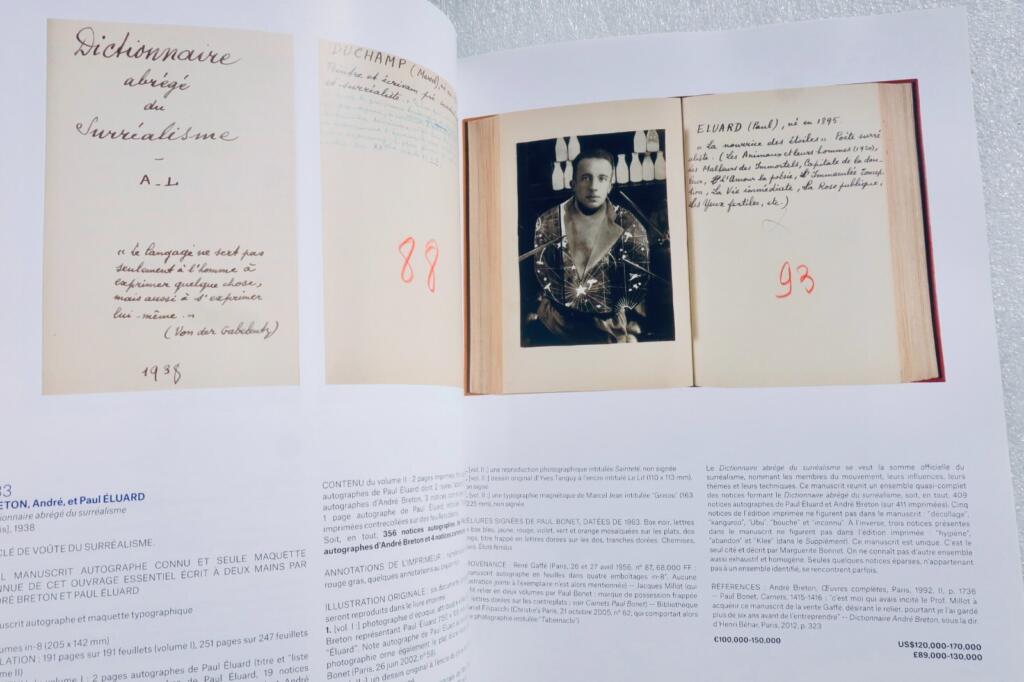 Dictionnaire
abrégé
du
Surréalisme
A-L
« Le langage ne sert pas
seulement à l'homme à
exprimer quelque chose,
mais aussi à s'exprimer
lui-même. »
(Von der Gabelentz)
1938
DUCHAMP (Marcel),
Peintre et écrivain pré
et surréaliste.
88
ELUARD (Paul), né en 1895.
« La nourrice des étoiles ». Poète surré
aliste. (Les Animaux et leurs hommes (1920),
Les Malheurs des Immortels, Capitale de la dou-
leur, L'Amour la poésie, L'Immaculée Concep-
tion, La Vie immédiate, La Rose publique,
Les Yeux fertiles, etc.)
93
33
ETON, André, et Paul ÉLUARD
ctionnaire abrégé du surréalisme
is], 1938
CLÉ DE VOÛTE DU SURRÉALISME.
L MANUSCRIT AUTOGRAPHE CONNU ET SEULE MAQUETTE
NNUE DE CET OUVRAGE ESSENTIEL ÉCRIT À DEUX MAINS PAR
DRÉ BRETON ET PAUL ÉLUARD
uscrit autographe et maquette typographique
umes in-8 (205 x 142 mm)
LATION : 191 pages sur 191 feuillets (volume I), 251 pages sur 247 feuillets
me II)
volume I : 2 pages autographes de Paul Éluard (titre et "liste
de Paul Éluard, 19 notices
CONTENU du volume II : 2 pages imprimées
autographes de Paul Éluard dont 2
d'André Breton, 3 notices
1 page autographe de Paul Éluard
imprimées contrecollées sur des feuillets
Soit, en tout, 356 notices autographes
autographes d'André Breton et 4 notices
ANNOTATIONS DE L'IMPRIMEUR :
rouge gras, quelques annotations au crayon
ILLUSTRATION ORIGINALE :
seront reproduits dans le livre imprimé
1. [vol. I ] photographie d'époque, attribuée
Breton représentant Paul Éluard
"Éluard". Note autographe de Paul Éluard
photographie orne également le
Bonet (Paris, 26 juin 2002, n° 58)
un dessin à l'encre
[vol. II :] une reproduction photographique intitulée Sainteté, non signée
[vol. II :] dessin original d'Yves Tanguy à l'encre intitulé Le Lit (110 x 113 mm).
non signé
[vol. II :] une typographie magnétique de Marcel Jean intitulée "Grelots" (163
x 225 mm), non signée
RELIURES SIGNÉES DE PAUL BONET, DATÉES DE 1963. Box noir, lettres
box bleu, jaune, rouge, violet, vert et orange mosaïquées sur les plats, dos
titre frappé en lettres dorées sur les dos, tranches dorées. Chemises,
étuis
PROVENANCE : René Gaffé (Paris, 26 et 27 avril 1956, n° 87, 68,000 FF :
manuscrit autographe en feuilles dans quatre emboîtages in-8". Aucune
illustration jointe à l'exemplaire n'est alors mentionnée) -- Jacques Millot
relié en deux volumes par Paul Bonet : marque de possession frappée
en lettres dorées sur les contreplats ; voir Carnets Paul Bonet) -- Bibliothèque
Daniel Filipacchi (Christie's Paris, 21 octobre 2005, n° 62, qui comportait alors
une photographie intitulée "Tabernacle")
Le Dictionnaire abrégé du surréalisme se veut la somme officielle du
surréalisme, nommant les membres du mouvement, leurs influences, leurs
thèmes et leurs techniques. Ce manuscrit réunit un ensemble quasi-complet
des notices formant le Dictionnaire abrégé du surréalisme, soit, en tout, 409
notices autographes de Paul Éluard et André Breton (sur 411 imprimées). Cinq
notices de l'édition imprimée ne figurent pas dans le manuscrit : "décollage",
"kanguroo", "Ubu", "bouche" et "inconnu". À l'inverse, trois notices présentes
dans le manuscrit ne figurent pas dans l'édition imprimée : "hygiène",
"abandon" et "Klee" (dans le Supplément). Ce manuscrit est unique. C'est le
seul cité et décrit par Marguerite Bonnet. On ne connaît pas d'autre ensemble
aussi exhaustif et homogène. Seules quelques notices éparses, n'appartenant
pas à un ensemble identifié, se rencontrent parfois.
RÉFÉRENCES : André Breton, Œuvres complètes, Paris, 1992, II, p. 1736
-- Paul Bonet, Carnets, 1415-1416 : "c'est moi qui avais incité le Prof. Millot à
acquérir ce manuscrit de la vente Gaffé, désirant le relier, pourtant je l'ai gardé
plus de six ans avant de l'entreprendre" -- Dictionnaire André Breton, sous la dir.
d'Henri Béhar, Paris, 2012, p. 323
€100,000-150,000
US$120,000-170,000
£89,000-130,000